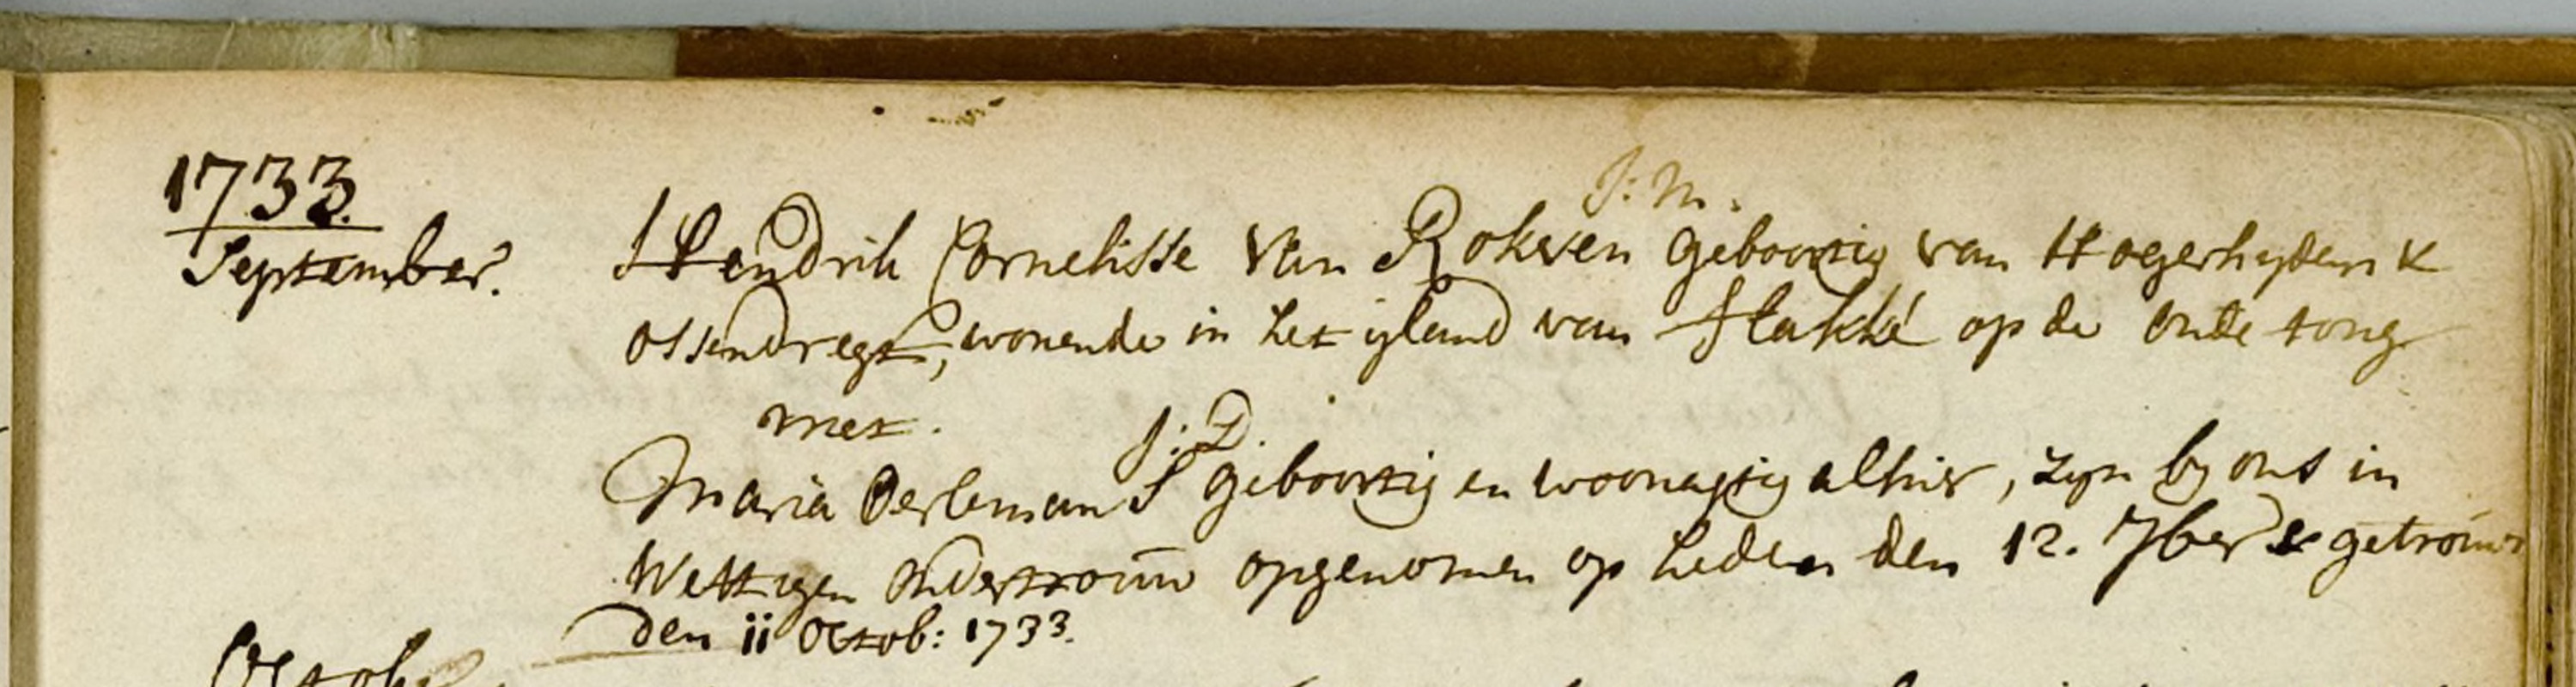 1733.
September.
J: m.
Hendrik Cornelisse Van Rokven geboortig van Hogerheyden &
ossendregt, wonende in het yland van Flakké op de oude tong
met.
J: D.
Maria Oerlemans geboortig en woonagtig alhier, zyn by ons in
Wettigen ondertrouw opgenomen op heden den 12. 7ber & getrouwt
den ii Octob: 1733.
Octob